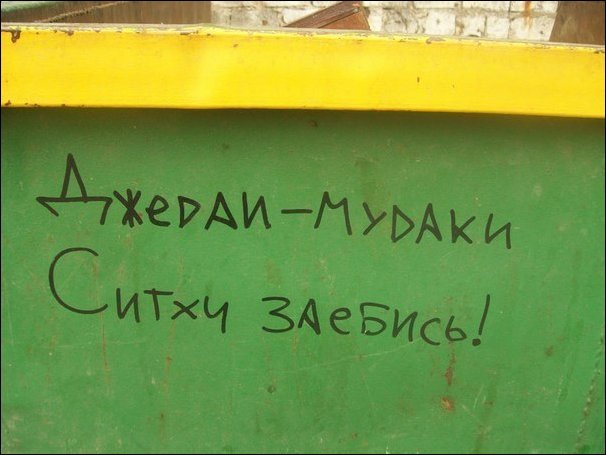 Джедаи - мудаки
Ситхи заебись!